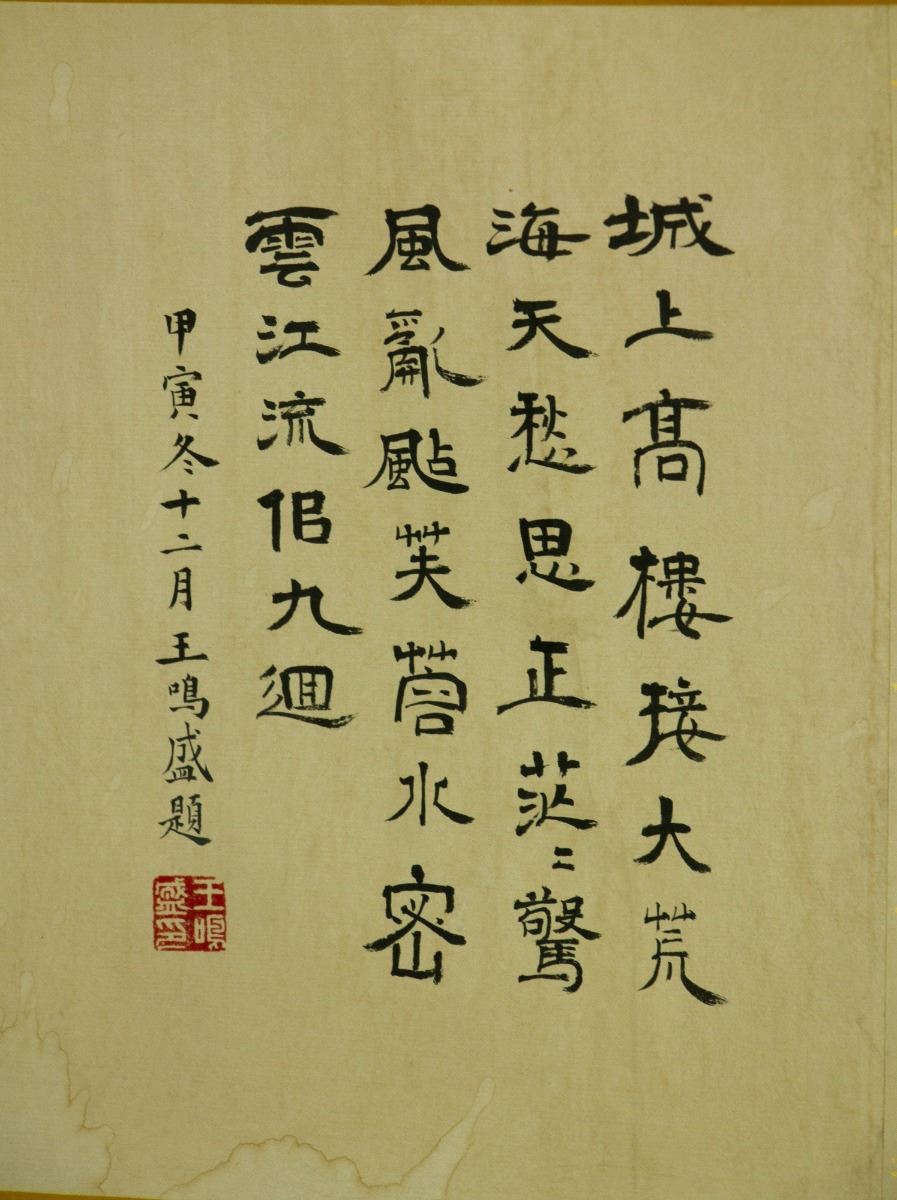 城上髙樓接大荒
海天愁思正茫〻驚
風亂颭芙蓉水密
雲江流佀九迴
甲寅冬十二月王鳴盛題
王鳴盛印